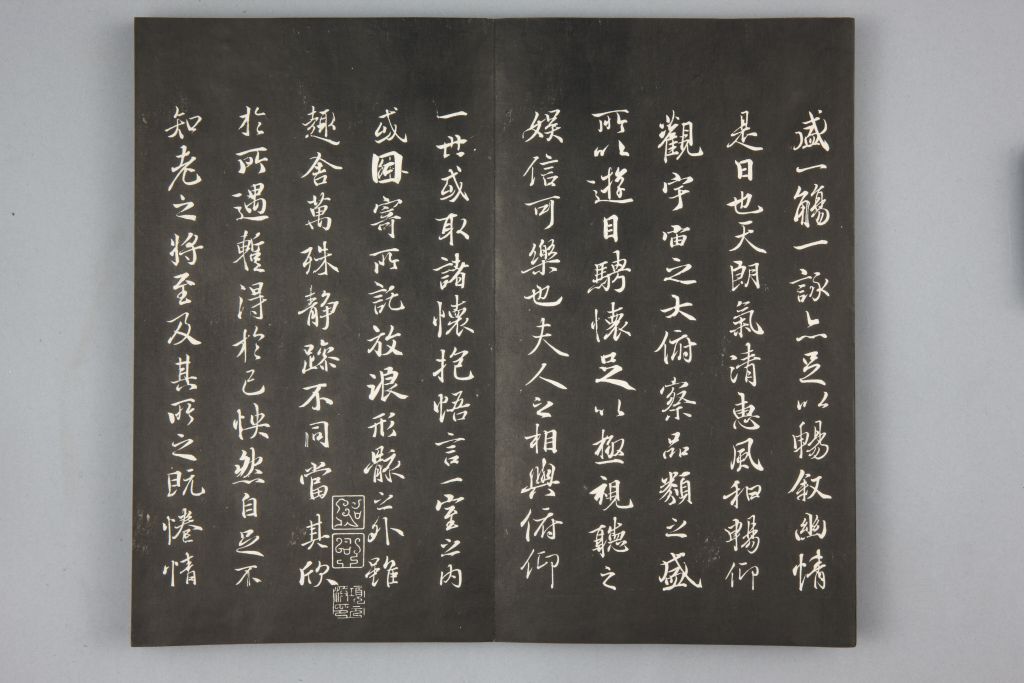 盛一觴一詠亦足以暢叙幽情
是日也天朗氣清惠風和暢仰
觀宇宙之大俯察品類之盛
所以遊目騁懷足以極視聽之
娛信可樂也夫人之相與俯仰
一世或取諸懷抱悟言一室之内
或因寄所託放浪形骸之外雖
趣舍萬殊静躁不同當其欣
於所遇蹔得於己怏然自足不
知老之将至及其所之既惓情